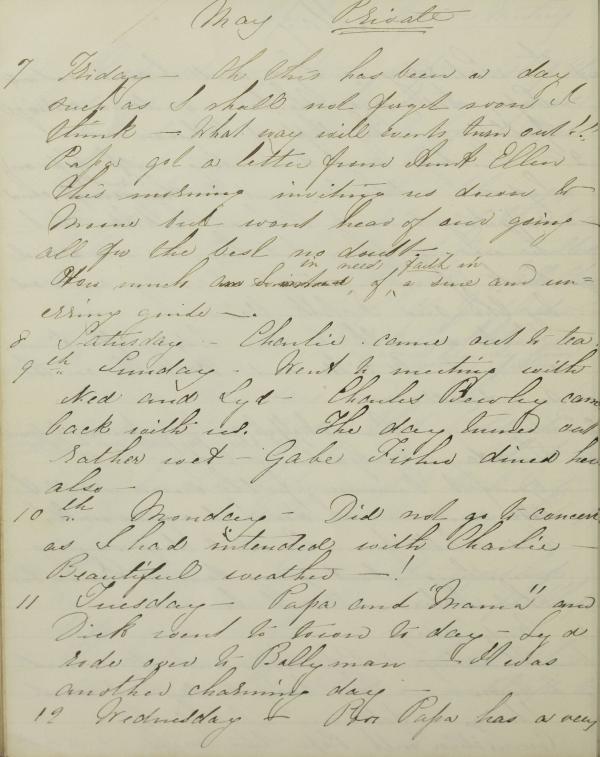 May Private
7 Friday - Oh this has been a day
such as I shall not forget soon I
think - What way will events turn out!!
Papa got a letter from Aunt Ellen
this morning inviting us down to
Moone but wont hear of our going -
all for the best no doubt
in need faith in
How much am I of a sure and un=
erring guide -.
8 Saturday - Charlie came out to tea.
9th Sunday - Went to meeting with
Ned and Lyd - Charles Bewley came
back with us. The day turned out
rather wet - Gabe Fisher dined here
also -
10th Monday - Did not go to concert
as I had intended with Charlie -
Beautiful weather - !
11 Tuesday - Papa and "Mama" and
Dick went to town to day - Lyd
rode over to Ballyman - It was
another charming day -
12 Wednesday - Poor Papa has a very